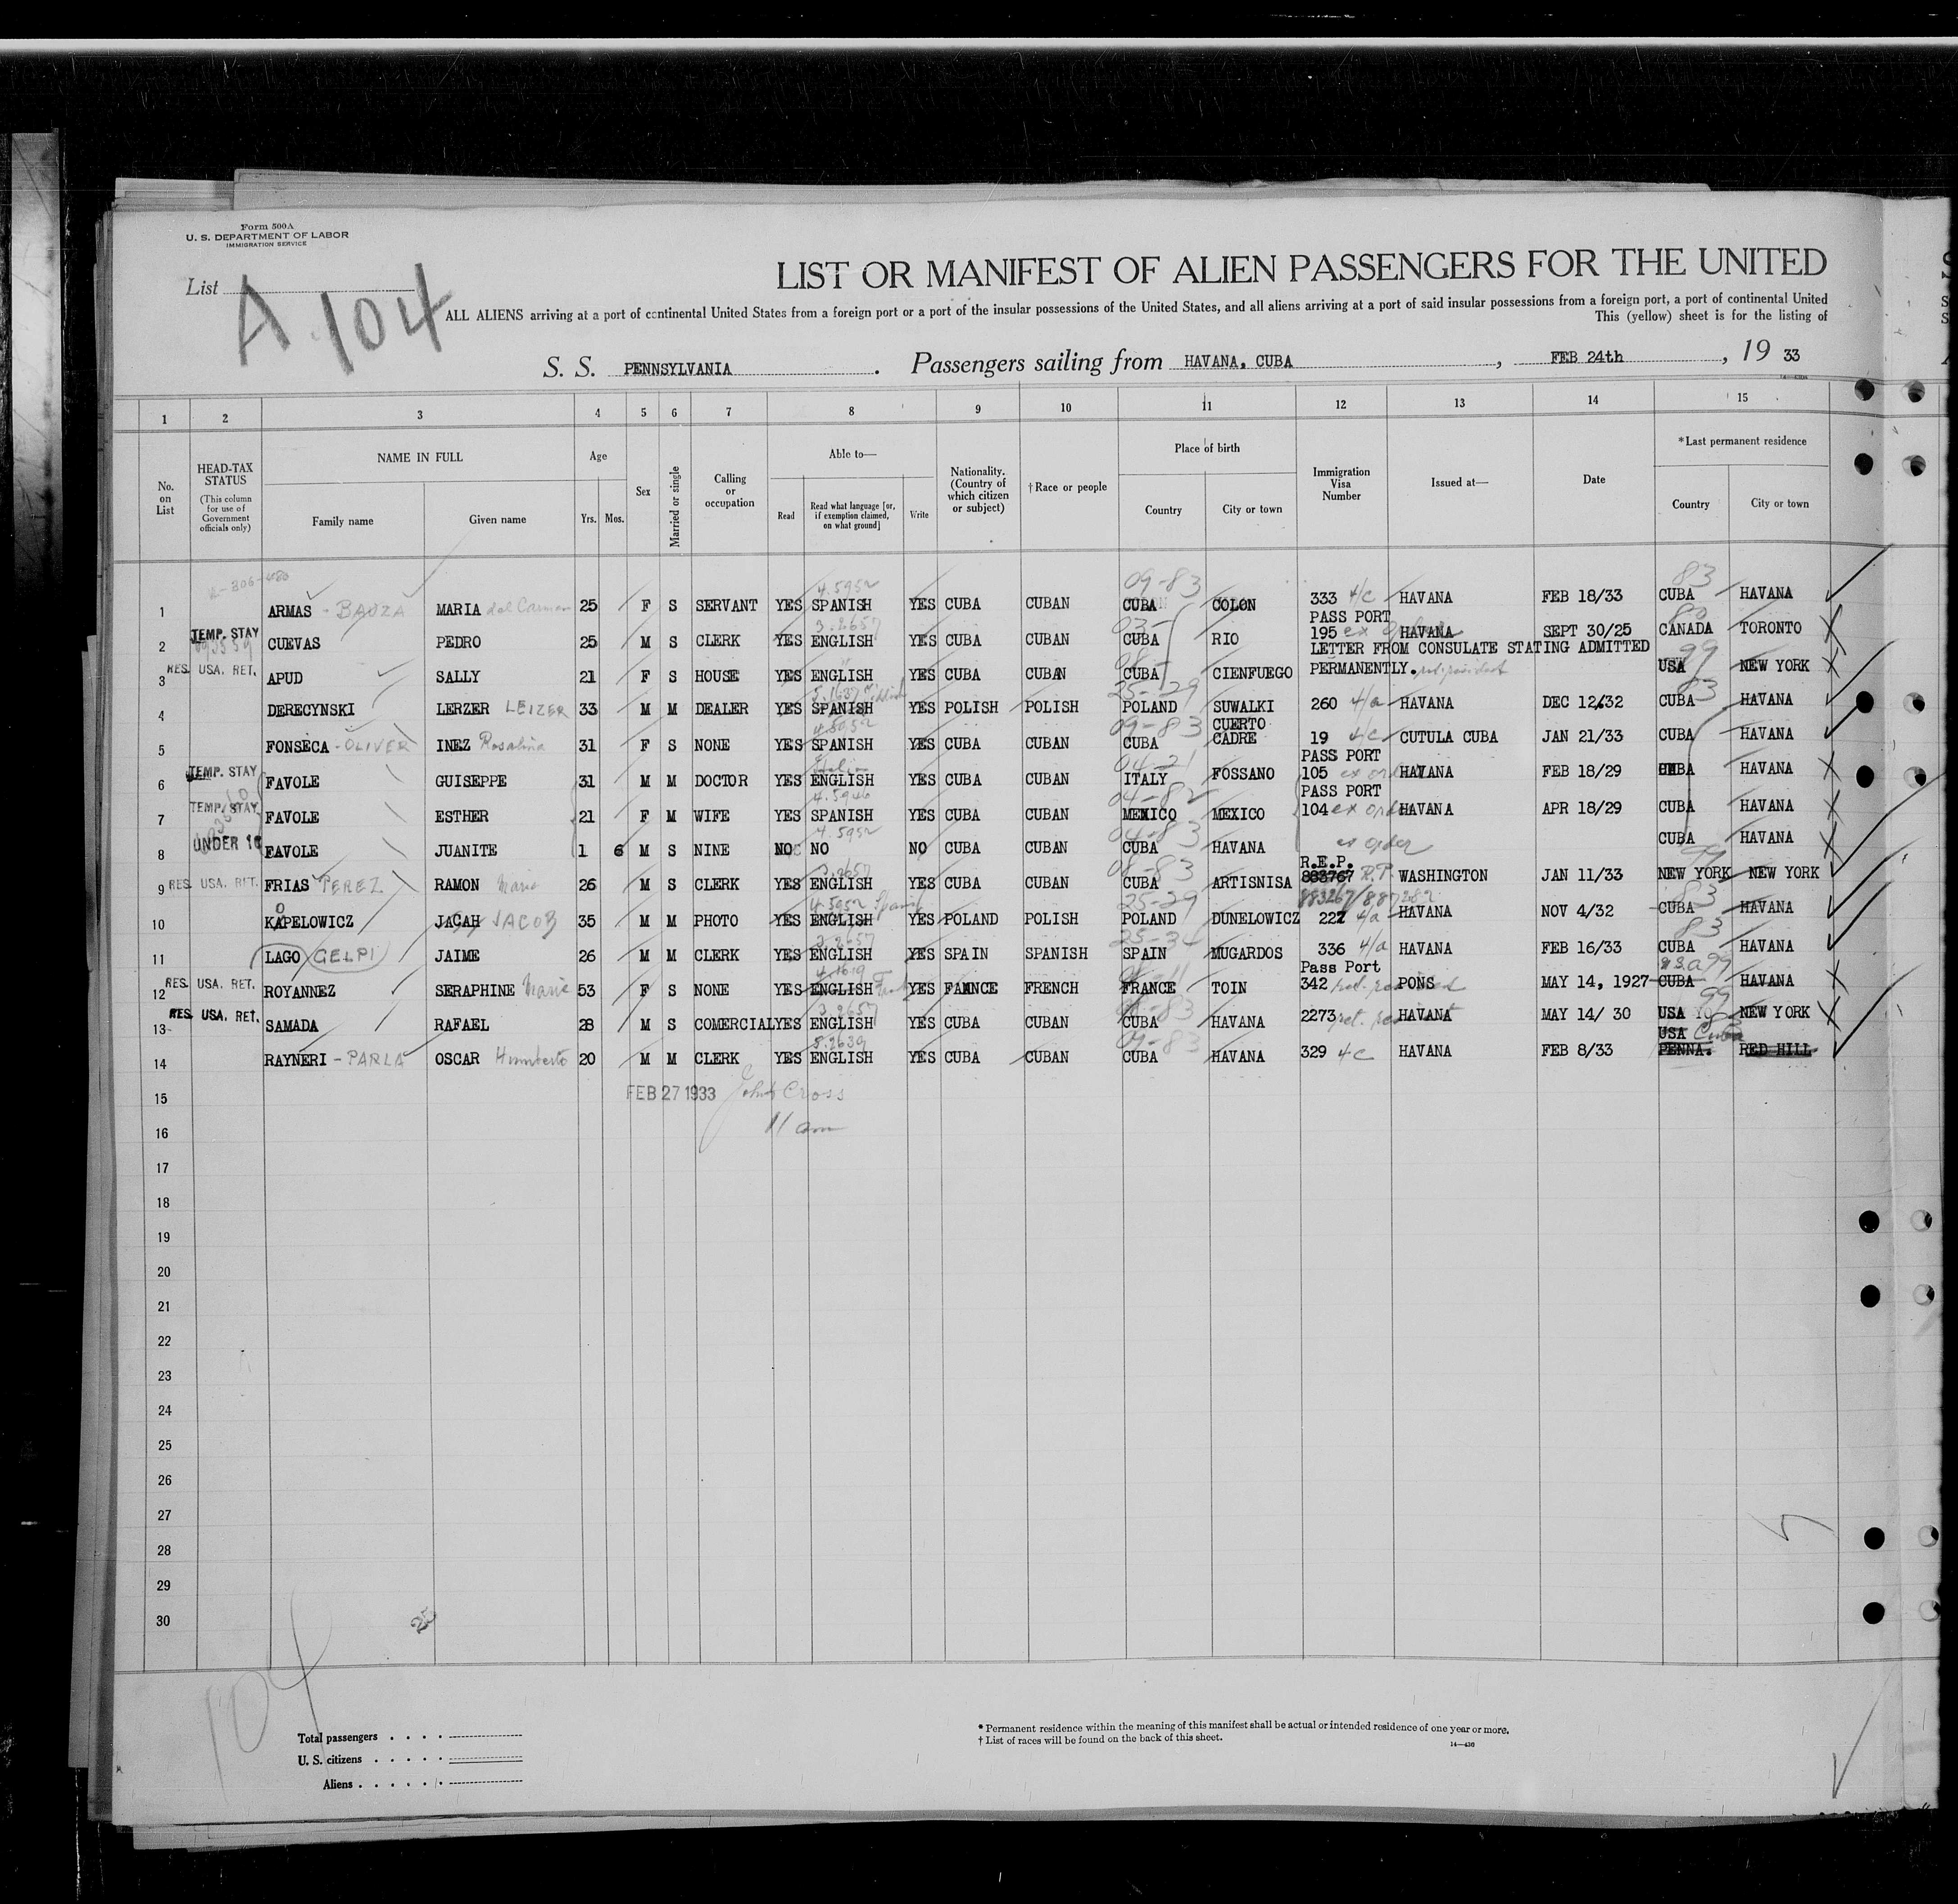 Form 500A
U. S. DEPARTMENT OF LABOR
IMMIGRATION SERVICE
List
A 104
LIST OR MANIFEST OF ALIEN PASSENGERS FOR THE UNITED
ALL ALIENS arriving at a port of continental United States from a foreign port or a port of the insular possessions of the United States, and all aliens arriving at a port of said insular possessions from a foreign port, a port of continental United
This (yellow) sheet is for the listing of
S. S. PENNSYLVANIA . Passengers sailing from HAVANA, CUBA , FEB 24th , 19 33
1 2 3 4 5 6 7 8 9 10 11 12 13 14 15
No. on List
HEAD-TAX STATUS (This column for use of Government officials only)
NAME IN FULL
Family name Given name
Age
Yrs. Mos.
Sex
Married or single
Calling or occupation
Able to—
Read
Read what language [or, if exemption claimed, on what ground]
Write
Nationality. (Country of which citizen or subject)
†Race or people
Place of birth
Country City or town
Immigration Visa Number
Issued at—
Date
*Last permanent residence
Country City or town
4.5952 09-83 83
1 ARMAS - BAUZA MARIA del Carmen 25 F S SERVANT YES SPANISH YES CUBA CUBAN CUBA COLON 333 4/c HAVANA FEB 18/33 CUBA HAVANA
3.2657 PASS PORT
2 TEMP. STAY CUEVAS PEDRO 25 M S CLERK YES ENGLISH YES CUBA CUBAN CUBA RIO 195 HAVANA SEPT 30/25 CANADA TORONTO
LETTER FROM CONSULATE STATING ADMITTED 99
3 RES. USA. RET. APUD SALLY 21 F S HOUSE YES ENGLISH YES CUBA CUBAN CUBA CIENFUEGO PERMANENTLY. USA NEW YORK
25-29 83
4 DERECYNSKI LERZER LEIZER 33 M M DEALER YES SPANISH YES POLISH POLISH POLAND SUWALKI 260 4/a HAVANA DEC 12/32 CUBA HAVANA
4.5952 09-83 CUERTO
5 FONSECA - OLIVER INEZ Rosalina 31 F S NONE YES SPANISH YES CUBA CUBAN CUBA CADRE 19 4/c CUTULA CUBA JAN 21/33 CUBA HAVANA
04-21 PASS PORT
6 TEMP. STAY FAVOLE GUISEPPE 31 M M DOCTOR YES ENGLISH YES CUBA CUBAN ITALY FOSSANO 105 ex order HAVANA FEB 18/29 CUBA HAVANA
4.5946 04-82 PASS PORT
7 TEMP. STAY FAVOLE ESTHER 21 F M WIFE YES SPANISH YES CUBA CUBAN MEXICO MEXICO 104 ex order HAVANA APR 18/29 CUBA HAVANA
4.5952 04-83
8 UNDER 16 FAVOLE JUANITE 1 6 M S NINE NO NO NO CUBA CUBAN CUBA HAVANA ex order CUBA HAVANA
3.2657 08-83 R.E.P. 99
9 RES. USA. RET. FRIAS PEREZ RAMON Mario 26 M S CLERK YES ENGLISH YES CUBA CUBAN CUBA ARTISNISA 883767 R.P. WASHINGTON JAN 11/33 NEW YORK NEW YORK
O 4.5952 25-29 83
10 KAPELOWICZ JACAH JACOB 35 M M PHOTO YES ENGLISH YES POLAND POLISH POLAND DUNELOWICZ 222 4/a HAVANA NOV 4/32 CUBA HAVANA
3.2657 25-34 83
11 LAGO GELPI JAIME 26 M M CLERK YES ENGLISH YES SPAIN SPANISH SPAIN MUGARDOS 336 4/a HAVANA FEB 16/33 CUBA HAVANA
Pass Port
12 RES. USA. RET. ROYANNEZ SERAPHINE Marie 53 F S NONE YES ENGLISH YES FRANCE FRENCH FRANCE TOIN 342 PONS MAY 14, 1927 CUBA HAVANA
3.2657 99
13 RES. USA. RET. SAMADA RAFAEL 28 M S COMERCIAL YES ENGLISH YES CUBA CUBAN CUBA HAVANA 2273 HAVANA MAY 14/ 30 USA NEW YORK
09-83 USA Cuba
14 RAYNERI - PARLA OSCAR Humberto 20 M M CLERK YES ENGLISH YES CUBA CUBAN CUBA HAVANA 329 4/c HAVANA FEB 8/33 PENNA. RED HILL
15 FEB 27 1933 John Cross
16 11 am
17
18
19
20
21
22
23
24
25
26
27
28
29
30
104
Total passengers
U. S. citizens
Aliens
* Permanent residence within the meaning of this manifest shall be actual or intended residence of one year or more.
† List of races will be found on the back of this sheet.
14—436